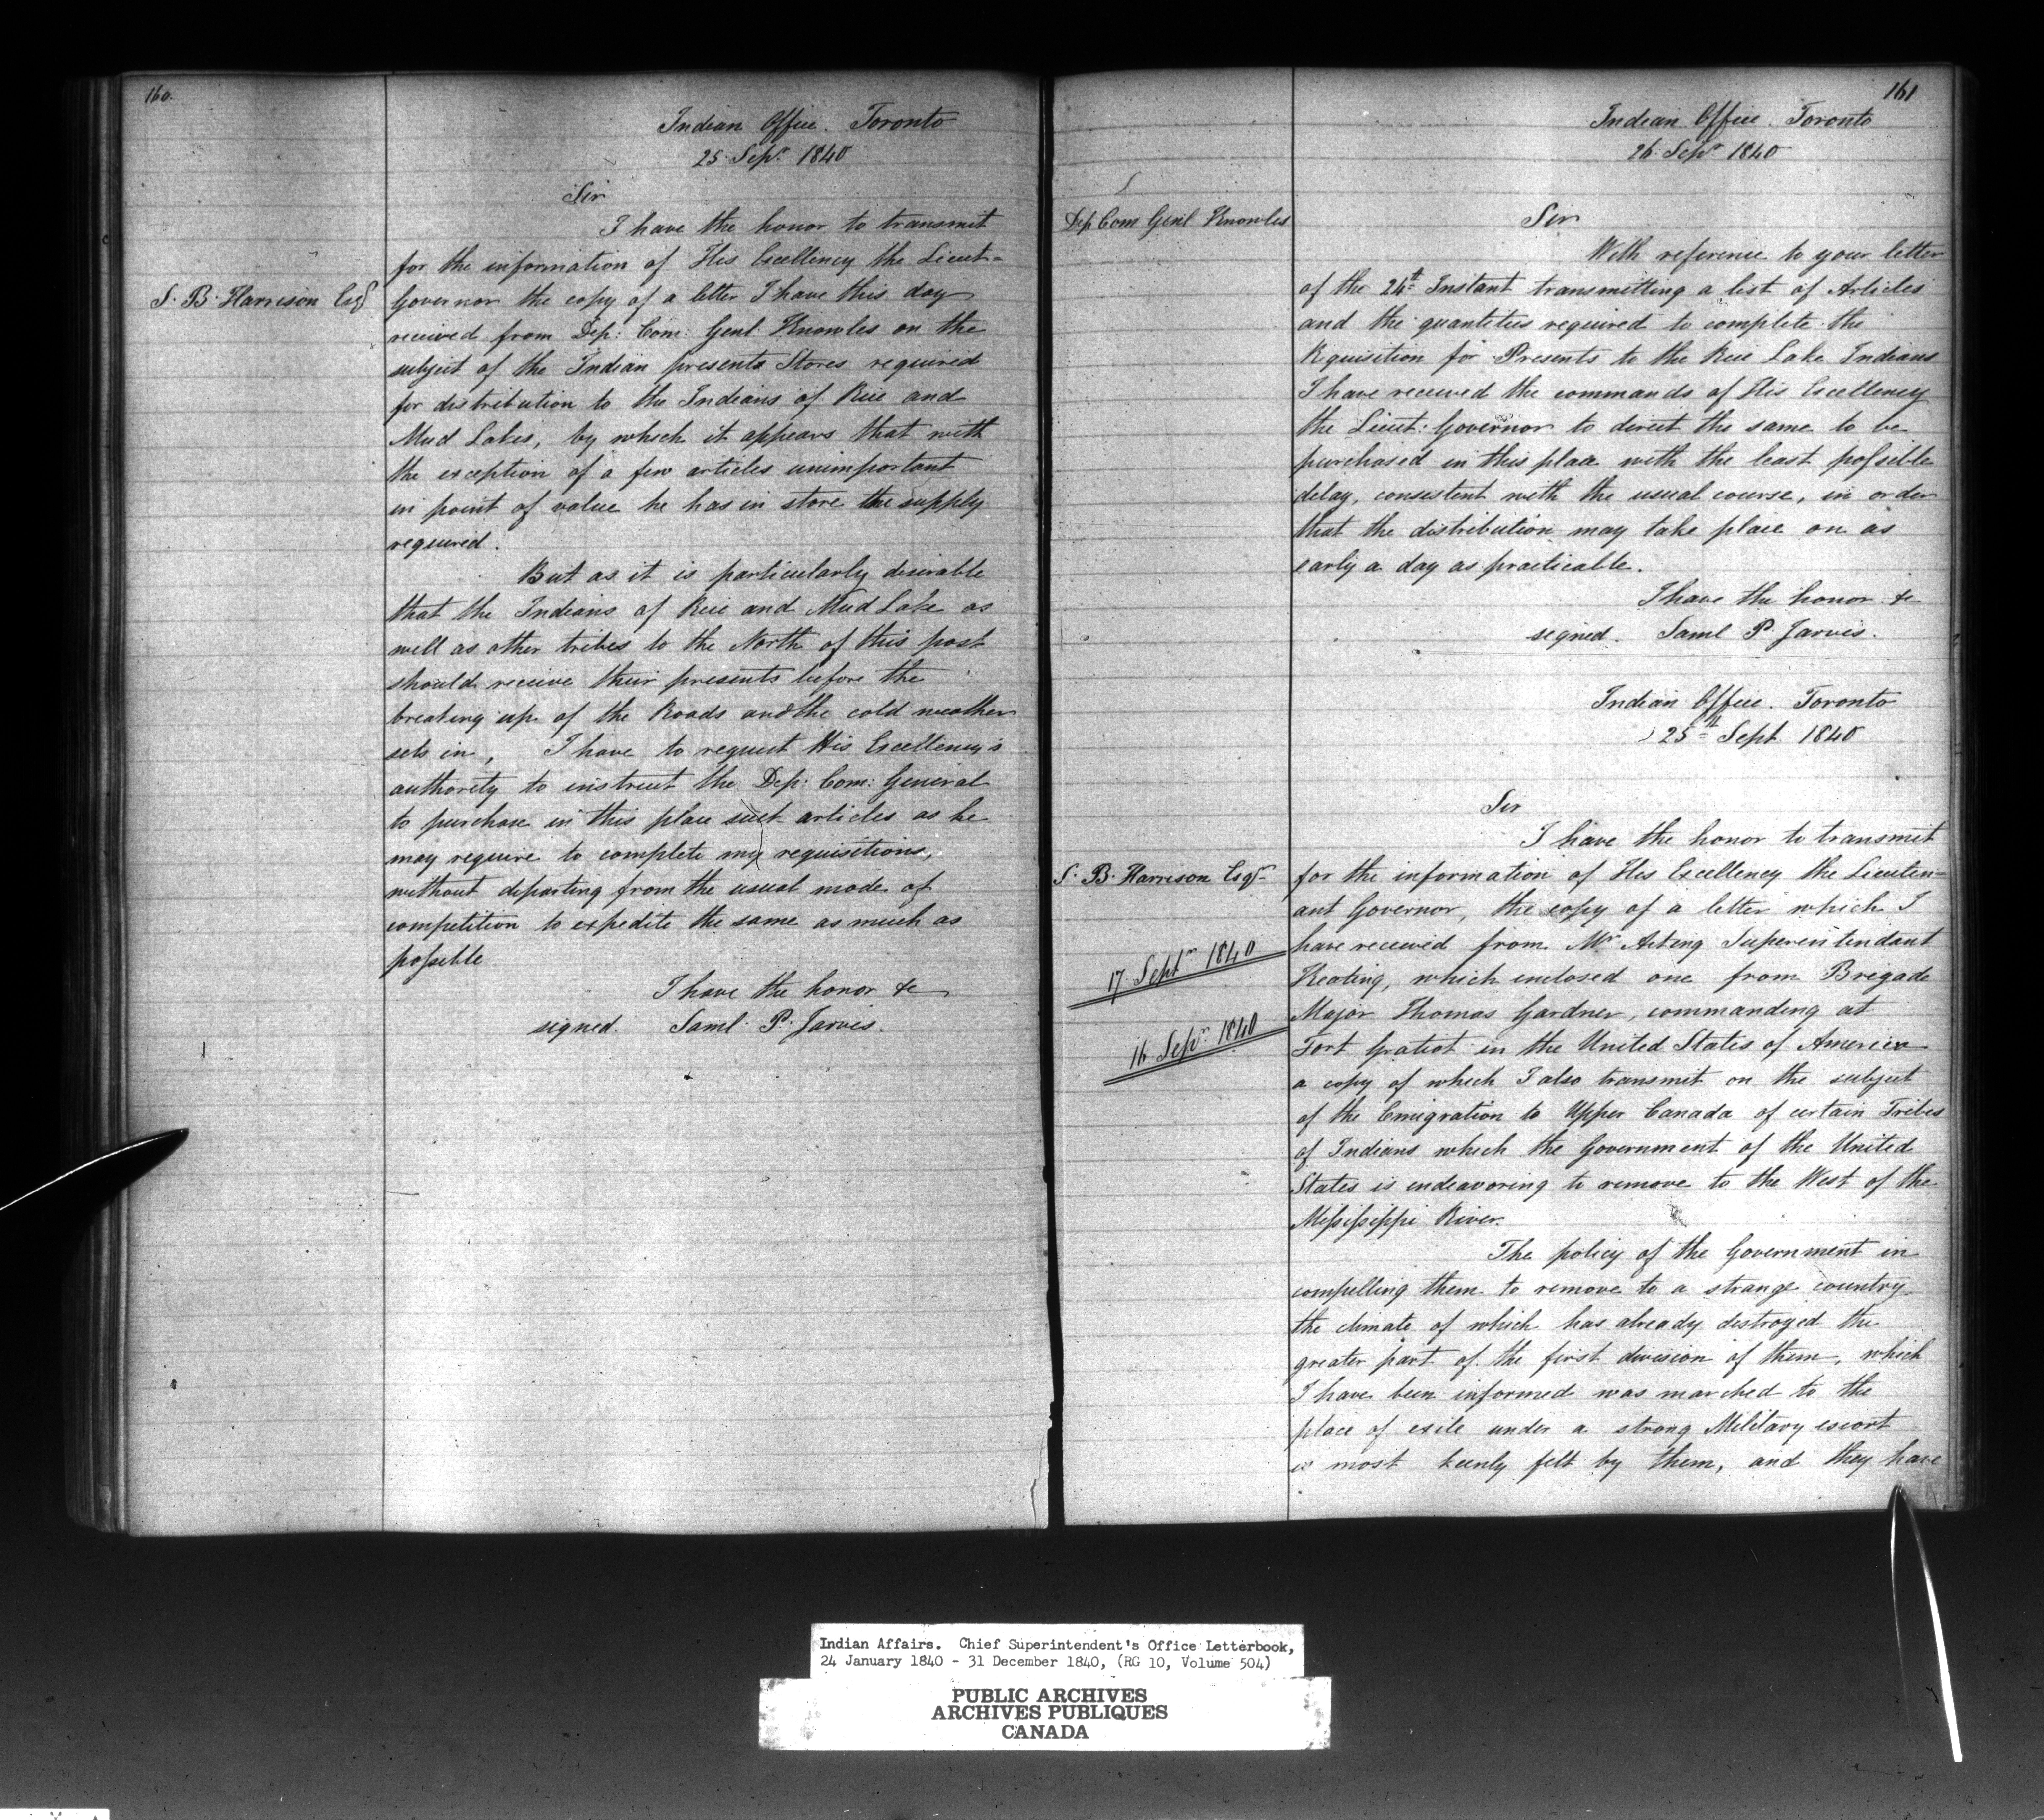 160.
Indian Office. Toronto
25. Sepr. 1840
Sir
I have the honor to transmit
for the information of His Excellency the Lieut=
S. B. Harrison Esqr
Governor the copy of a letter I have this day
received from Dep: Com: Genl: Knowles on the
subject of the Indian presents Stores required
for distribution to the Indians of Rice and
Mud Lakes, by which it appears that with
the exception of a few articles unimportant
in point of value he has in store the supply
required.
But as it is particularly desirable
that the Indians of Rice and Mud Lake as
well as other tribes to the North of this post
should receive their presents before the
breaking up of the Roads and the cold weather
sets in, I have to request His Excellency's
authority to instruct the Dep: Com: General
to purchase in this place such articles as he
may require to complete my requisitions,
without departing from the usual mode of
competition to expedite the same as much as
possible
I have the honor &c
signed. Saml. P. Jarvis.
161
Indian Office. Toronto
26. Sepr 1840
Dep Com Genl Knowles
Sir
With reference to your letter
of the 24th Instant transmitting a list of Articles
and the quantities required to complete the
Requisition for Presents to the Rice Lake Indians
I have received the commands of His Excellency
the Lieut: Governor to direct the same to be
purchased in this place with the least possible
delay, consistent with the usual course, in order
that the distribution may take place on as
early a day as practicable.
I have the honor &c
signed. Saml P. Jarvis.
Indian Office. Toronto
25th Sept. 1840
Sir
I have the honor to transmit
S. B. Harrison Esqr
for the information of His Excellency the Lieuten=
ant Governor, the copy of a letter which I
have received from Mr Acting Superintendant
17. Septr 1840
Keating, which enclosed one from Brigade
Major Thomas Gardner, commanding at
16 Sepr 1840
Fort Gratiot in the United States of America
a copy of which I also transmit on the subject
of the Emigration to Upper Canada of certain Tribes
of Indians which the Government of the United
States is endeavoring to remove to the West of the
Mississippi River.
The policy of the Government in
compelling them to remove to a strange country
the climate of which has already destroyed the
greater part of the first division of them, which
I have been informed was marched to the
place of exile under a strong Military escort
is most keenly felt by them, and they have
Indian Affairs. Chief Superintendent's Office Letterbook,
24 January 1840 - 31 December 1840, (RG 10, Volume 504)
PUBLIC ARCHIVES
ARCHIVES PUBLIQUES
CANADA